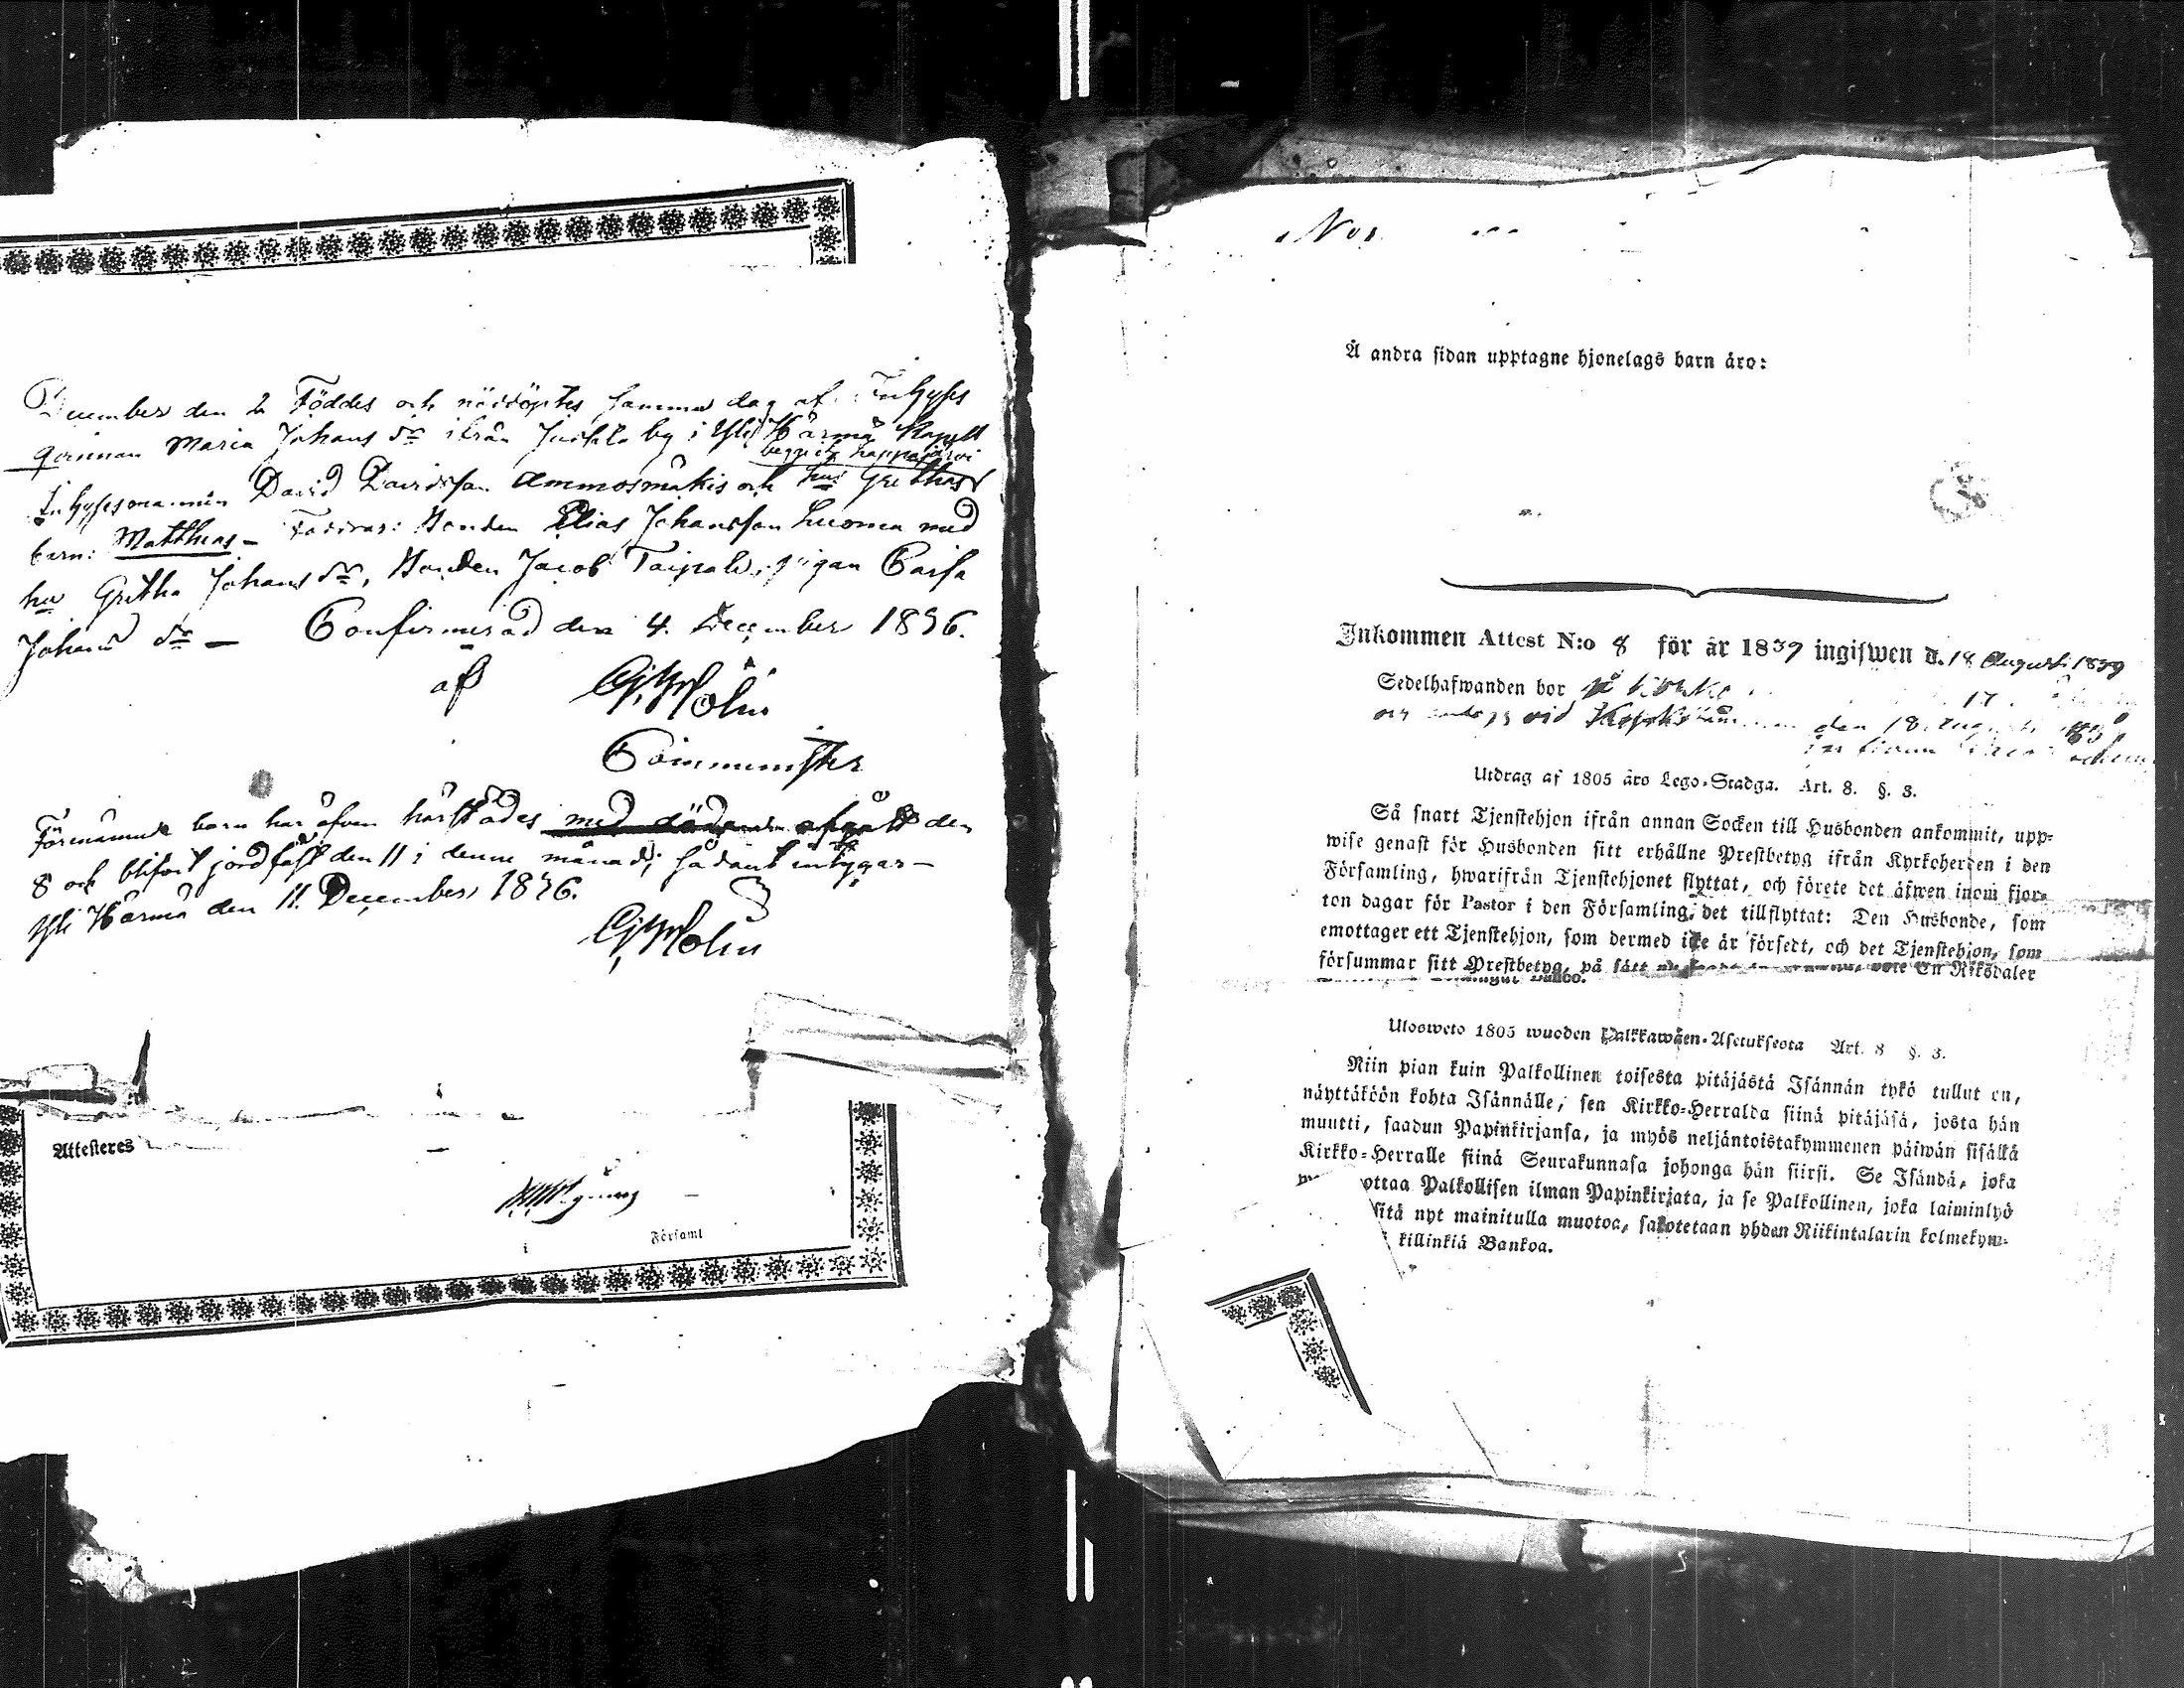 December den 2 Föddes och nöddöptes samma dag af Inhyses
qvinnan Maria Johans dr ifrån by i Ylihärmä Kapell
begge ifr Lappajärvi
Inhysesmannen David Davidsson Ammosmäkis och hus Grethas
barn: Matthias – Faddrar: Bonden Elias Johansson Luoma med
hu Gretha Johans dr, Bonden Jacob Taipale, pigan Caisa
Johans dr – Confirmerad den 4. December 1836.
af G. Holm
Comminister
Förnämnde barn har äfven härstädes med döden afgått den
8 och blifvit jordfäst den 11 i denne månad; sådant intygar –
Yli Härmä den 11. December 1836.
G. Holm
Attesteres
Församl
Å andra sidan upptagne hjonelags barn äro:
Inkommen Attest N:o 8 för år 1839 ingifwen d. 18 Augusti 1839
Sedelhafwanden bor på
vid den 18
Utdrag af 1805 års Lego-Stadga. Art. 8. §. 3.
Så snart Tjenstehjon ifrån annan Socken till Husbonden ankommit, upp-
wise genast för Husbonden sitt erhållne Prestbetyg ifrån Kyrkoherden i den
Församling, hwarifrån Tjenstehjonet flyttat, och förete det äfwen inom fjor-
ton dagar för Pastor i den Församling, det tillflyttat: Den Husbonde, som
emottager ett Tjenstehjon, som dermed icke är försedt, och det Tjenstehjon, som
försummar sitt Prestbetyg, på sätt En Riksdaler
Banco.
Ulosweto 1805 wuoden Palkkawäen-Asetuksesta Art. 8 §. 3.
Niin pian kuin Palkollinen toisesta pitäjästä Isännän tykö tullut on,
näyttäköön kohta Isännälle, sen Kirkko-Herralda siinä pitäjäsä, josta hän
muutti, saadun Papinkirjansa, ja myös neljäntoistakymmenen päiwän sisällä
Kirkko-Herralle siinä Seurakunnasa johonga hän siirsi. Se Isändä, joka
ottaa Palkollisen ilman Papinkirjata, ja se Palkollinen, joka laiminlyö
sitä nyt mainitulla muotoa, sakotetaan yhden Riikintalarin kolmekym-
killinkiä Bankoa.